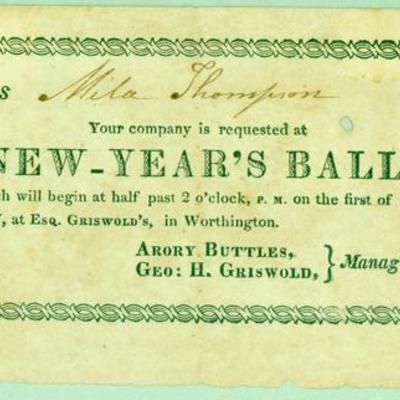 s Mila Thompson
Your company is requested at
NEW-YEAR'S BALL
ch will begin at half past 2 o'clock, P. M. on the first of
, at Esq. Griswold's, in Worthington.
Arory Buttles,
Geo: H. Griswold, } Manag